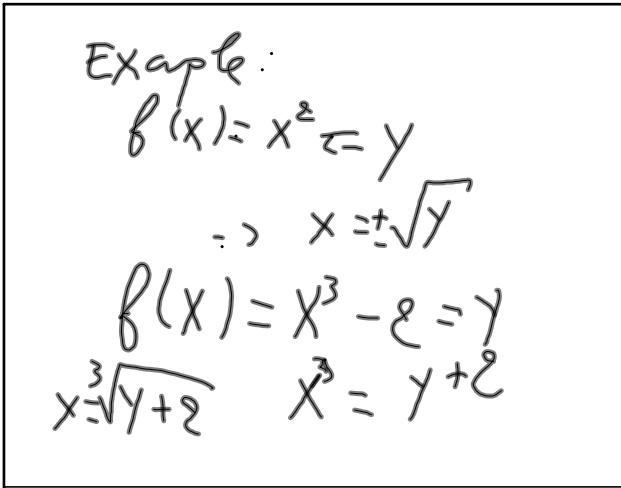 Exaple:
f(x) = x² = y
=> x = ±√y
f(x) = x³ - 2 = y
x = ³√(y+2) x³ = y+2